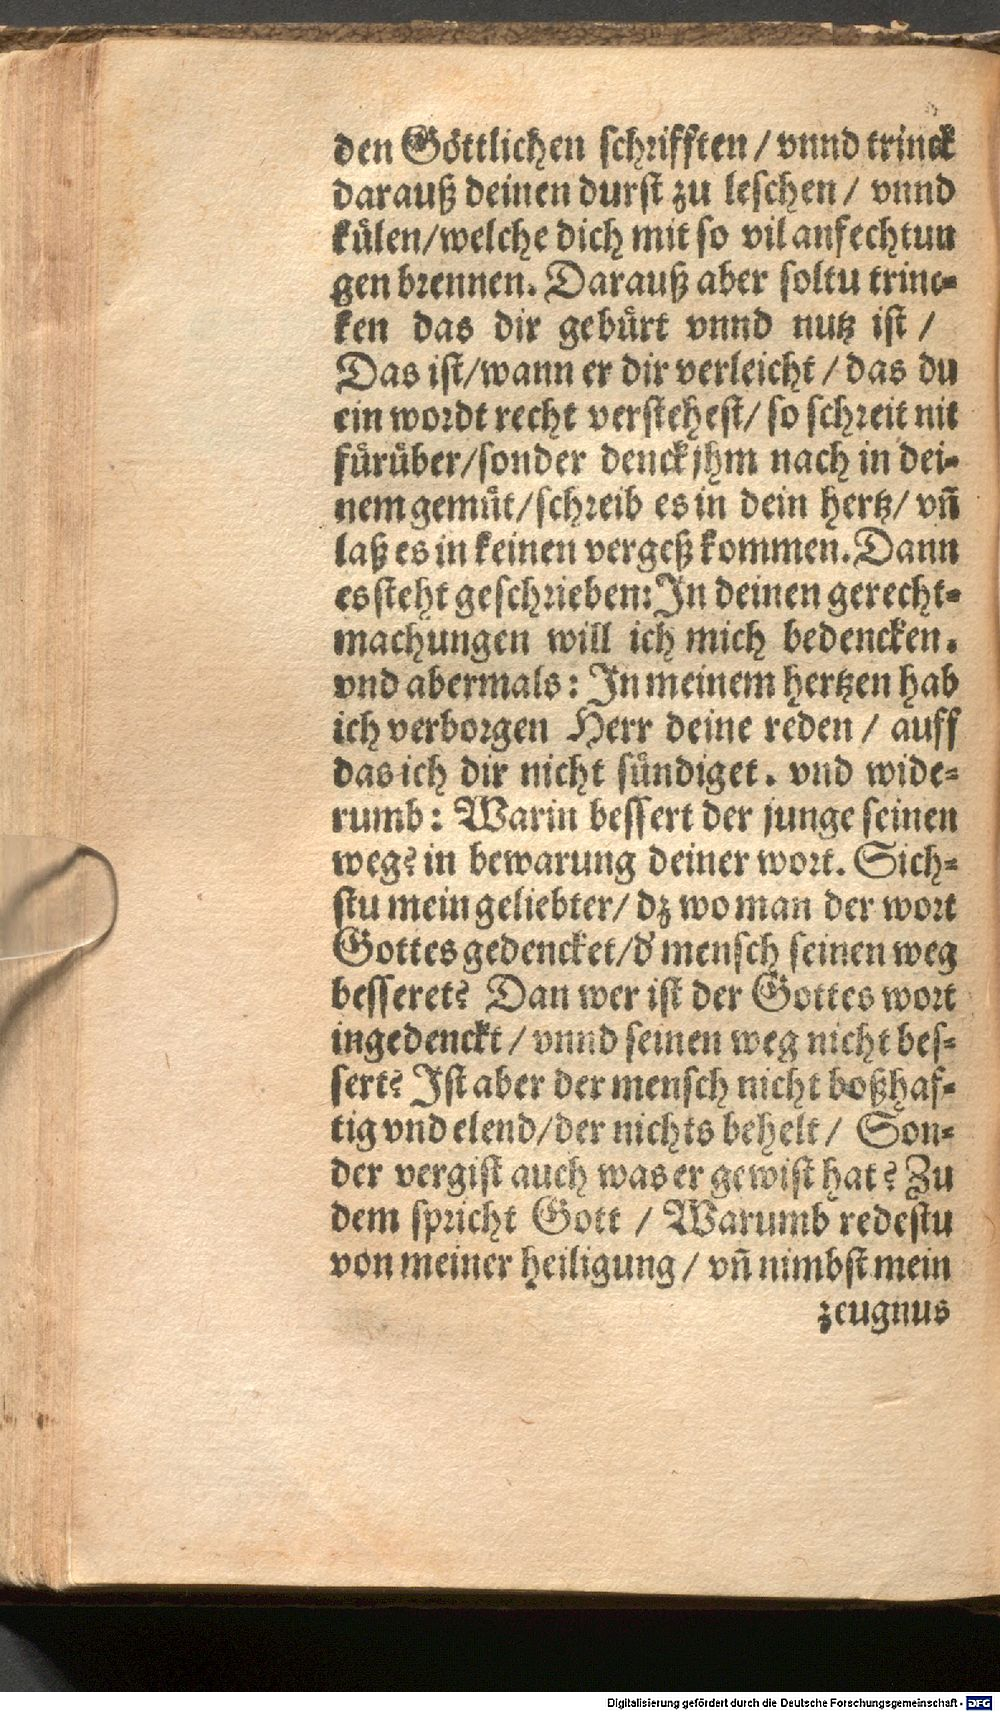 den Göttlichen schrifften / vnnd trinck
darauß deinen durst zu leschen / vnnd
külen/welche dich mit so vil anfechtun
gen brennen. Darauß aber soltu trinc-
ken das dir gebürt vnnd nutz ist /
Das ist/wann er dir verleicht / das du
ein wordt recht verstehest/ so schreit nit
fürüber/sonder denck jhm nach in dei-
nem gemüt/schreib es in dein hertz/ vñ
laß es in keinen vergeß kommen. Dann
es steht geschrieben: In deinen gerecht-
machungen will ich mich bedencken.
vnd abermals: In meinem hertzen hab
ich verborgen Herr deine reden / auff
das ich dir nicht sündiget. vnd wide-
rumb: Warin bessert der junge seinen
weg? in bewarung deiner wort. Sich-
stu mein geliebter/ dz wo man der wort
Gottes gedencket/d' mensch seinen weg
besseret? Dan wer ist der Gottes wort
ingedenckt / vnnd seinen weg nicht bes-
sert? Ist aber der mensch nicht boßhaf-
tig vnd elend/der nichts behelt / Son-
der vergist auch was er gewist hat? Zu
dem spricht Gott / Warumb redestu
von meiner heiligung / vñ nimbst mein
zeugnus
Digitalisierung gefördert durch die Deutsche Forschungsgemeinschaft - DFG